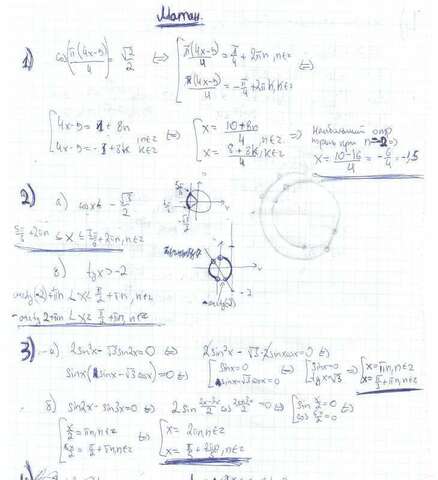 Матан.
1) cos(π(4x-5)/4) = √2/2 ⇔ [π(4x-5)/4 = π/4 + 2πn, n∈z
π(4x-5)/4 = -π/4 + 2πk, k∈z ⇔
[4x-5 = 1 + 8n, n∈z
4x-5 = -1 + 8k, k∈z ⇔ [x = (10+8n)/4, n∈z
x = (8+8k)/4, k∈z ⇒ Наибольший
корень при n=-2
x = (10-16)/4 = -6/4 = -1,5
2) а) cosx ≤ -√3/2
5π/6 + 2πn ≤ x ≤ 7π/6 + 2πn, n∈z
tgx > -2
-2
+πn < x < π/2 + πn, n∈z
-arctg2 + πn < x < π/2 + πn, n∈z
3) а) 2sin²x - √3sin2x = 0 ⇔ 2sin²x - √3·2sinxcosx = 0 ⇔
sinx(sinx - √3cosx) = 0 ⇔ [sinx = 0
sinx - √3cosx = 0 ⇔ [sinx = 0
tgx = √3 ⇔ [x = πn, n∈z
x = π/3 + πn, n∈z
б) sin2x - sin3x = 0 ⇔ 2sin (2x-3x)/2 cos (2x+3x)/2 = 0 ⇔ [sin x/2 = 0
cos 5x/2 = 0 ⇔
[x/2 = πn, n∈z
5x/2 = π/2 + πn, n∈z ⇔ [x = 2πn, n∈z
x = π/5 + 2πn/5, n∈z